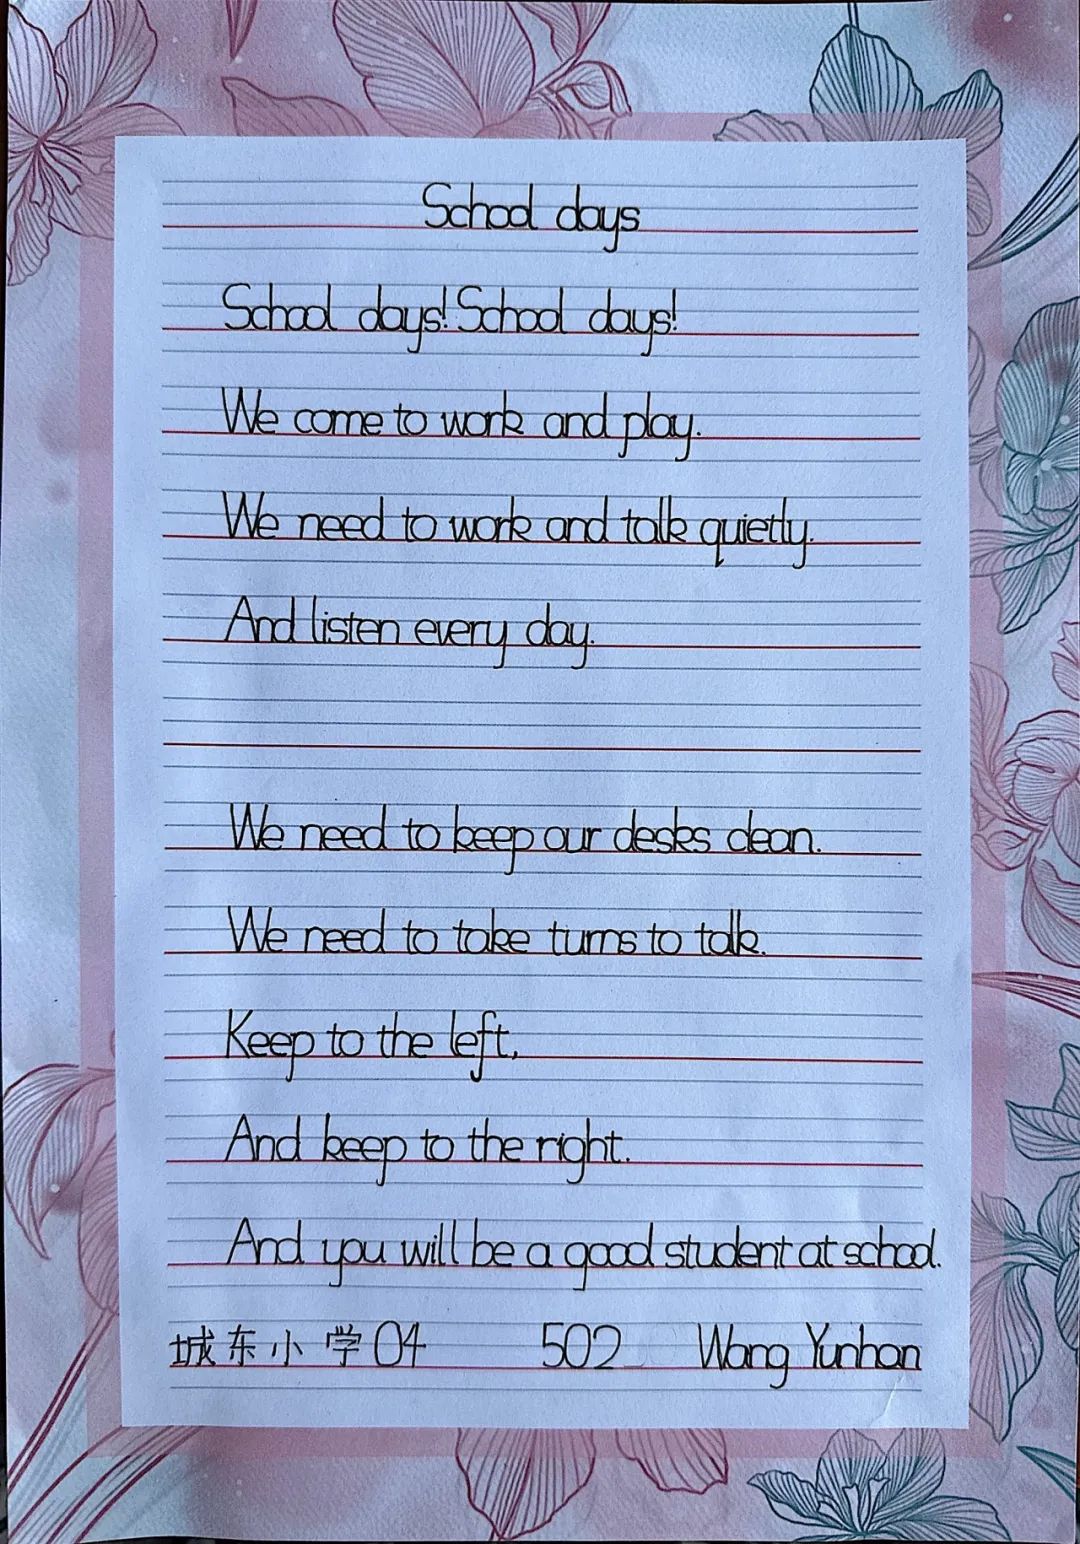 School days
School days! School days!
We come to work and play.
We need to work and talk quietly.
And listen every day.
We need to keep our desks clean.
We need to take turns to talk.
Keep to the left,
And keep to the right.
And you will be a good student at school.
城东小学04 502 Wang Yunhan